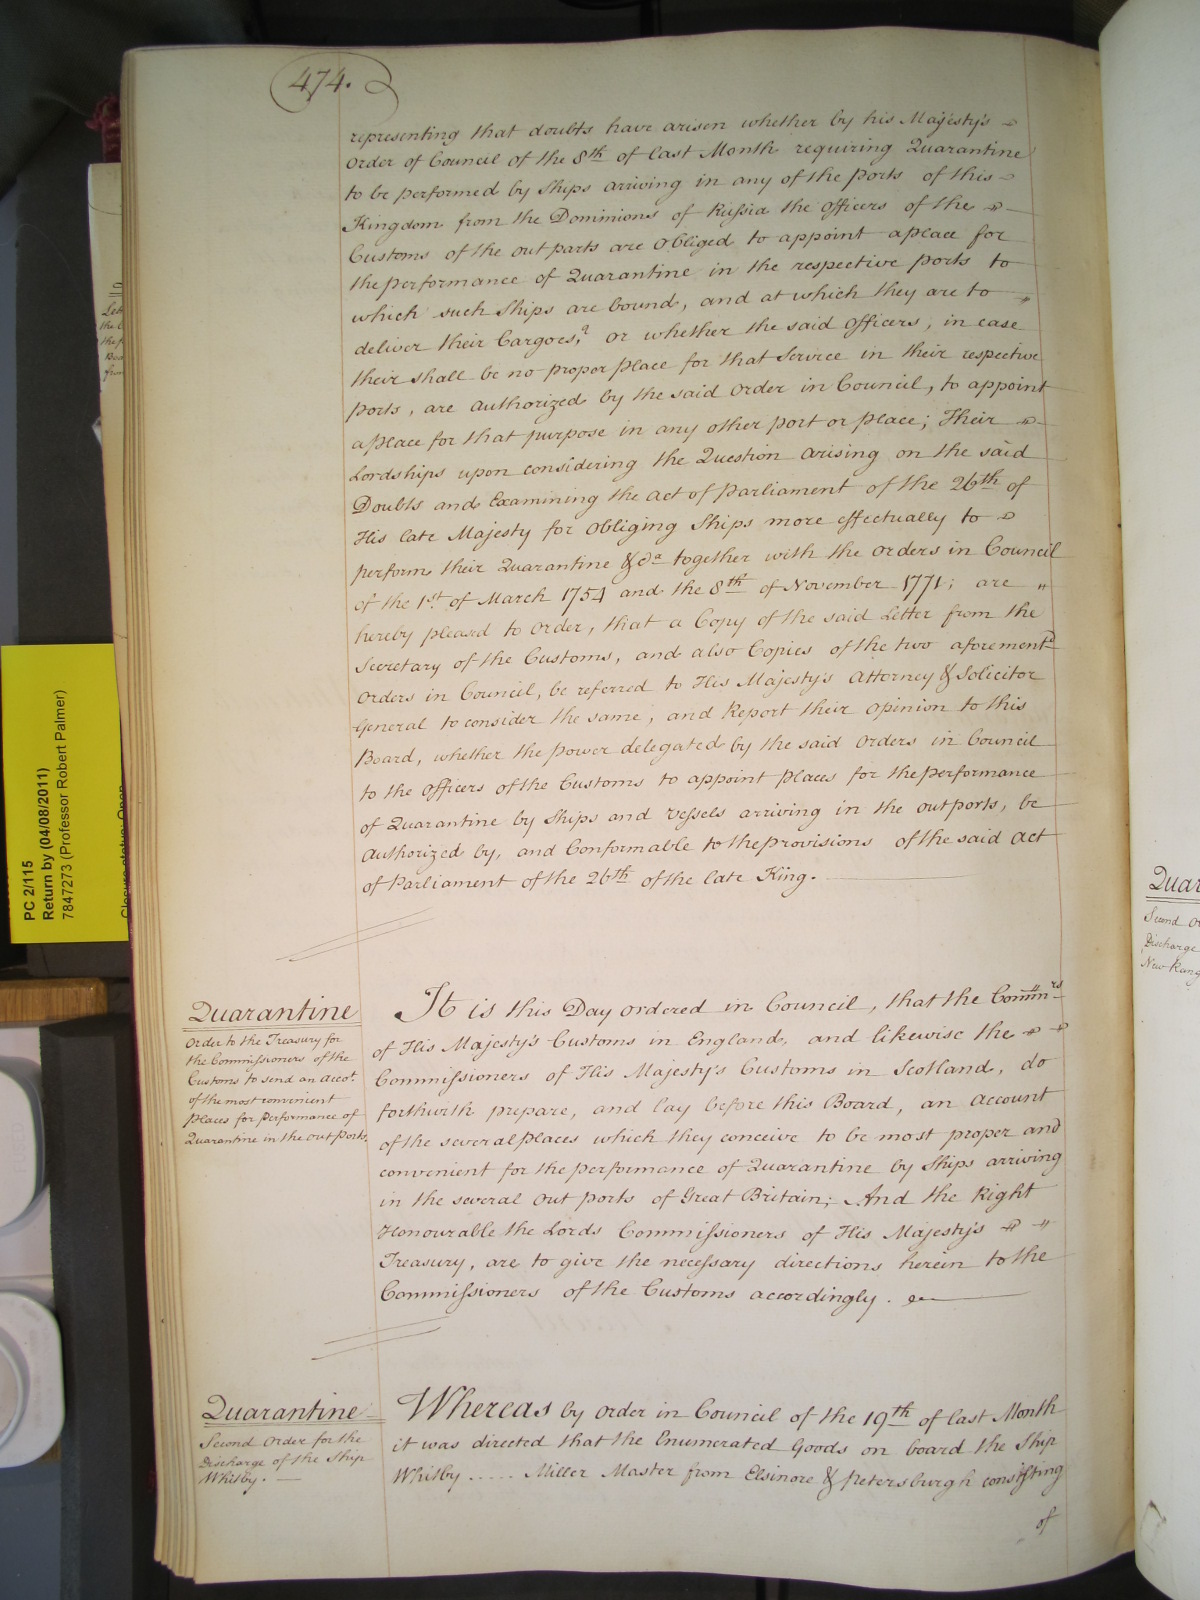 474.
representing that doubts have arisen whether by his Majesty's
Order of Council of the 8th of last Month requiring Quarantine
to be performed by Ships arriving in any of the ports of this
Kingdom from the Dominions of Russia the officers of the
Customs of the out parts are obliged to appoint a place for
the performance of Quarantine in the respective ports to
which such Ships are bound, and at which they are to
deliver their Cargoes, or whether the said Officers, in case
their shall be no proper place for that Service in their respective
ports, are authorized by the said Order in Council, to appoint
a place for that purpose in any other port or place; Their
Lordships upon considering the Question arising on the said
Doubts and Examining the Act of Parliament of the 26th of
His late Majesty for obliging Ships more effectually to
perform their Quarantine &ca together with the Orders in Council
of the 1st of March 1754 and the 8th of November 1771; are
hereby pleased to Order, that a Copy of the said Letter from the
Secretary of the Customs, and also Copies of the two aforementd
Orders in Council, be referred to His Majesty's Attorney & Solicitor
General to consider the same, and Report their Opinion to this
Board, whether the power delegated by the said Orders in Council
to the Officers of the Customs to appoint places for the performance
of Quarantine by Ships and Vessels arriving in the outports, be
authorized by, and Conformable to the provisions of the said Act
of Parliament of the 26th of the late King.
Quarantine
Order to the Treasury for
the Commissioners of the
Customs to send an Accot.
of the most convenient
places for performance of
Quarantine in the out ports.
It is this Day ordered in Council, that the Commrs
of His Majesty's Customs in England, and likewise the
Commissioners of His Majesty's Customs in Scotland, do
forthwith prepare, and lay before this Board, an account
of the several places which they conceive to be most proper and
convenient for the performance of Quarantine by Ships arriving
in the several out ports of Great Britain; And the Right
Honourable the Lords Commissioners of His Majesty's
Treasury, are to give the necessary directions herein to the
Commissioners of the Customs accordingly.
Quarantine
Second Order for the
Discharge of the Ship
Whitby.
Whereas by Order in Council of the 19th of last Month
it was directed that the Enumerated Goods on board the Ship
Whitby ..... Miller Master from Elsinore & Petersburgh consisting
of
PC 2/115
Return by (04/08/2011)
7847273 (Professor Robert Palmer)
Second
Discharge